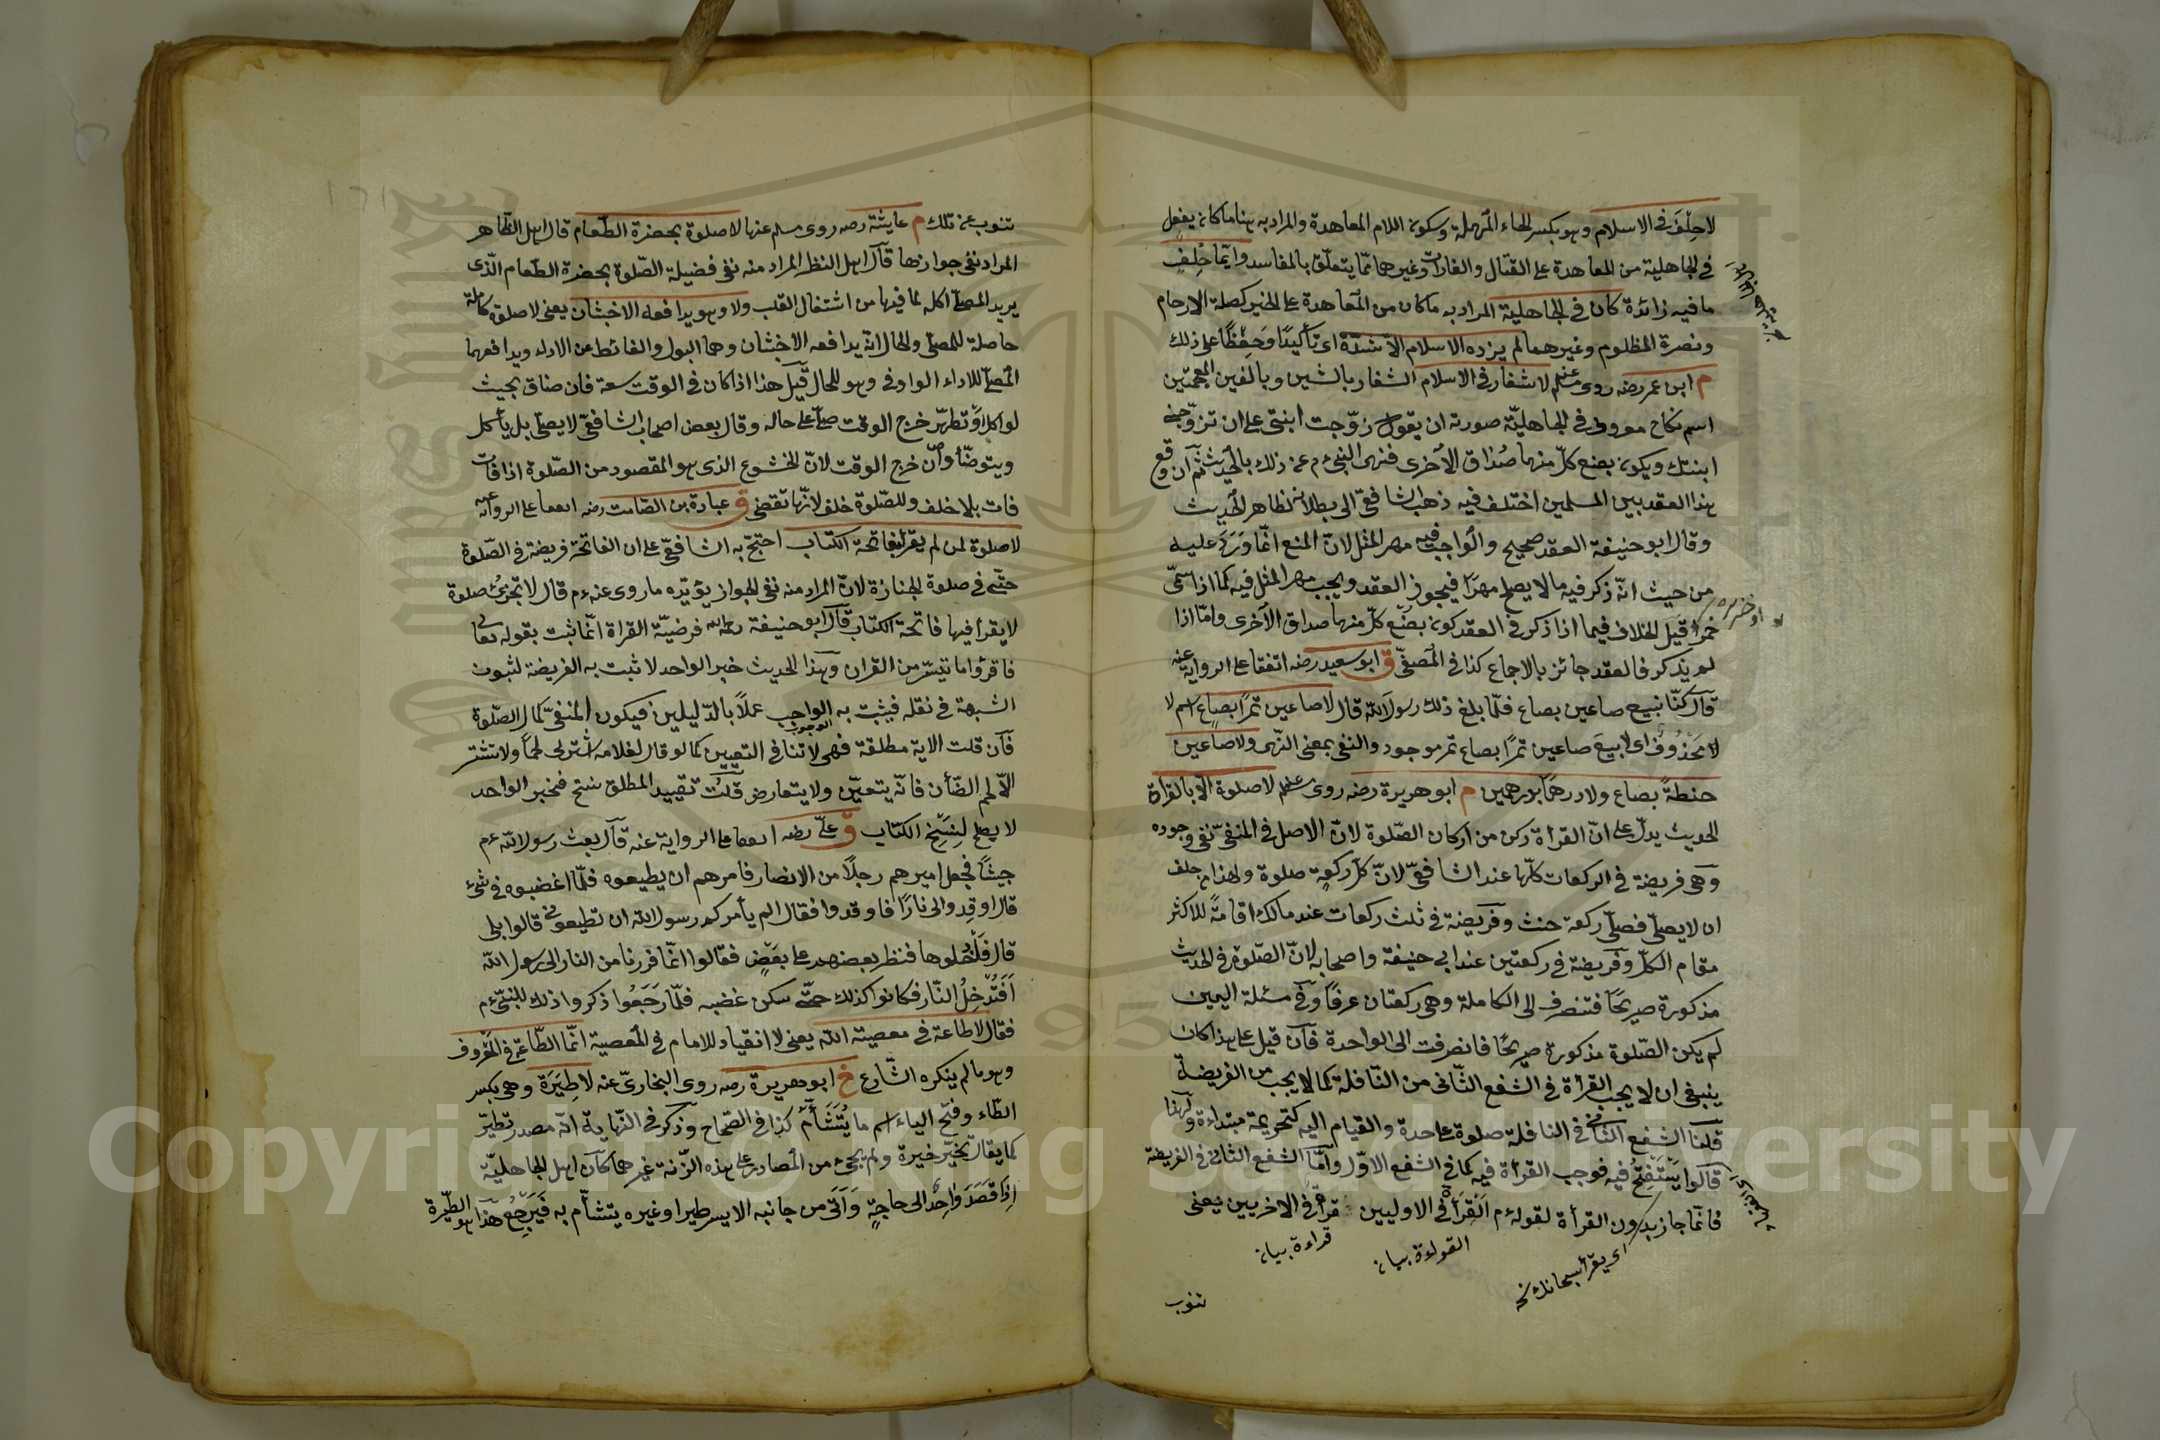 لا حِلْفَ في الاسلام وهو بكسر الحاء المهملة وسكون اللام المعاهدة والمراد به هنا ما كان يفعل
في الجاهلية من المعاهدة على القتال والغارات وغيرهما مما يتعلق بالمفاسد وايّما حِلْفٍ
ما فيه زائدة كان في الجاهلية المراد به ما كان من المعاهدة على الخير كصلة الارحام
ونصرة المظلوم وغيرهما لم يزده الاسلام الا شدّة اى تأكيدًا وحِفْظًا على ذلك
م ابن عمر رضه روى مسلم عنه لا شغار في الاسلام الشغار بالشين وبالغين المعجمتين
اسم نكاح معروف في الجاهليّة صورته ان يقول زوّجت ابنتى على ان تزوّجنى
ابنتك ويكون بضع كلّ منهما صُداق الاخرى فنهى النبى ءم عن ذلك بالحديث ثم ان وقع
هذا العقد بين المسلمين اختلف فيه ذهب الشافعىّ الى بطلانه لظاهر الحديث
وقال ابو حنيفة العقد صحيح والواجب فيه مهر المثل لانّ المنع انّما وَرَدَ عليه
من حيث انّه ذكر فيه ما لا يصلح مهرًا فيجوز العقد ويجب مهر المثل فيه كما اذا سمّى
خمرًا قيل الخلاف فيما اذا ذكر في العقد كون بُضْع كلّ منهما صداق الاخرى وامّا اذا
لم يذكر فالعقد جائز بالاجماع كذا في المصفّى ق ابو سعيد رضه اتفقا على الرواية عنه
قال كنّا نبيع صاعين بصاع فلمّا بلغ ذلك رسول الله قال لا صاعين تمرًا بصاع اسم لا
لا محذوف اى لا بيعَ صاعين تمرًا بصاع تمر موجود والنفى بمعنى النهى ولا صاعين
حنطةً بصاع ولا درهمًا بدرهمين م ابو هريرة رضه روى مسلم لا صلوة الا بالقراة
الحديث يدلّ على انّ القرأة ركن من اركان الصّلوة لانّ الاصل في المنفىّ نفى وجوده
وهى فريضة في الركعات كلّها عند الشافعىّ لانّ كلّ ركعة صلوة ولهذا لو حلف
ان لا يصلّى فصلّى ركعة حنث وفريضة في ثلث ركعات عند مالك اقامةً للاكثر
مقام الكلّ وفريضة في ركعتين عند ابى حنيفة واصحابه لانّ الصّلوة في الحديث
مذكورة صريحًا فتنصرف الى الكاملة وهى ركعتان عرفًا وفى مسئلة اليمين
لم يكن الصّلوة مذكورة صريحًا فانصرفت الى الواحدة فان قيل على هذا كان
ينبغى ان لا يجب القرأة في الشفع الثّانى من النّافلة كما لا يجب من الفريضة
قلنا الشفع الثّانى في النافلة صلوة على حدة والقيام اليه كتحريمة مبتداءة ولهذا
قالوا يَسْتَفْتِحُ فيه فوجب القرأة فيه كما في الشفع الاوّل وامّا الشفع الثانى في الفريضة
فانّما جاز بدون القرأة لقوله ءم القِرَأة في الاوليين قرأة في الاخريين يعنى
اى يقرأ سبحانك نخـ
القراءة بيان
قراءة بيان
تنوب
او خنزيرًا
تنوب عن تلك م عايشة رضه روى مسلم عنها لا صلوة بحضرة الطّعام قال اهل الظّاهر
المراد نفى جوازها قال اهل النظر المراد منه نفى فضيلة الصّلوة بحضرة الطّعام الّذى
يريد المصلّى اكله لما فيها من اشتغال القلب ولا وهو يدافعه الاخبثان يعنى لا صلوة كاملة
حاصلة للمصلّى والحال انّه يدافعه الاخبثان وهما البول والغائط عن الاداء ويدافعهما
المصلّى للاداء الواو في وهو للحال قيل هذا اذا كان في الوقت سعة فان ضاق بحيث
لو اكل او تطهّر خرج الوقت صلّى على حاله وقال بعض اصحاب الشافعىّ لا يصلّى بل يأكل
ويتوضّأ وان خرج الوقت لانّ الخشوع الذى هو المقصود من الصّلوة اذا فات
فات بلا خلف وللصّلوة خلف لانّها تقضى ق عبادة بن الصّامت رضه اتفقا على الرواية عنه
لا صلوة لمن لم يقرأ بفاتحة الكتاب احتجّ به الشافعىّ على ان الفاتحة فريضة في الصّلوة
حتّى في صلوة الجنازة لانّ المراد منه نفى الجواز يؤيّده ما روى عنه ءم قال لا تجزئ صلوة
لا يقرأ فيها فاتحة الكتاب قال ابو حنيفة رحمه الله فرضيّة القراة انّما ثبت بقوله تعالى
فاقرؤا ما تيسّر من القران وهذا الحديث خبر الواحد لا ثبت به الفريضة لثبوت
الشبهة في نقله فيثبت به الواجب عملاً بالدّليلين فيكون المنفىّ كمال الصّلوة
الوجوب
فان قلت الاية مطلقة فهى لا تنافى التعيين كما لو قال لغلامه اشتر لى لحمًا ولا تشتر
الّا لحم الضّأن فانّه يتعيّن ولا يتعارض قلت تقييد المطلق نسخ فخبر الواحد
لا يصلح لنَسْخِ الكتاب ق علىّ رضه اتفقا على الرواية عنه قال بعث رسول الله ءم
جيشًا فجعل اميرهم رجلاً من الانصار فامرهم ان يطيعوه فلمّا اغضبوه في شئ
قال اوقدوا لى نارًا فاوقدوا فقال الم يأمركم رسول الله ان تطيعونى قالوا بلى
قال فادْخُلوها فنظر بعضهم على بعْضٍ فقالوا انّما فررنا من النار الى رسول الله
أفَنَدْخُلُ النّار فكانوا كذلك حتّى سكن غضبه فلمّا رَجَعُوا ذكروا ذلك للنبىّ ءم
فقال لا طاعة في معصية الله يعنى لا انقياد للامام في المعصية انّما الطّاعة في المعروف
وهو ما لم ينكره الشّارع خ ابو هريرة رضه روى البخارىّ عنه لا طِيَرَة وهى بكسر
الطّاء وفتح الياء اسم ما يُتَشَأَّمُ كذا في الصّحاح وذكر في النّهاية انّه مصدر تطيّر
كما يقال تخيّر خيرة ولم يجئ من المصادر على هذه الزّنة غيرهما كان اهل الجاهليّة
اذا قَصَدَ واحِدٌ الى حاجةٍ وَاَتَى من جانبه الايسر طير او غيره يتشأّم به فيَرْجِعُ هذا هو الطّيرة
Copyright © King Saud University
1957